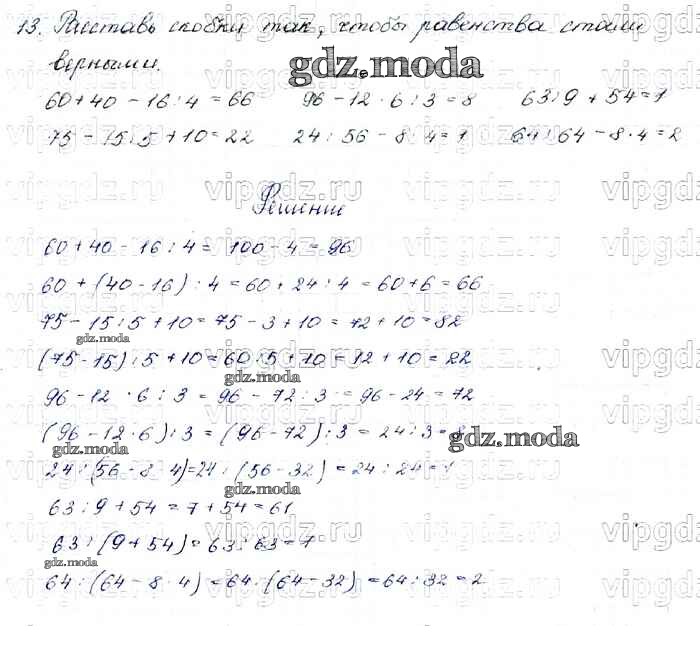 13. Расставь скобки так, чтобы равенства стали
верными.
gdz.moda
60+40 - 16 : 4 = 66    96 - 12 · 6 : 3 = 8    63 : 9 + 54 = 1
75 - 15 : 5 + 10 = 22    24 : 56 - 8 · 4 = 1    64 : 64 - 8 · 4 = 2
Решение
60 + 40 - 16 : 4 = 100 - 4 = 96
60 + (40 - 16) : 4 = 60 + 24 : 4 = 60 + 6 = 66
75 - 15 : 5 + 10 = 75 - 3 + 10 = 72 + 10 = 82
gdz.moda
(75 - 15) : 5 + 10 = 60 : 5 + 10 = 12 + 10 = 22
gdz.moda
96 - 12 · 6 : 3 = 96 - 72 : 3 = 96 - 24 = 72
(96 - 12 · 6) : 3 = (96 - 72) : 3 = 24 : 3 = 8
gdz.moda
24 : (56 - 8 4) = 24 : (56 - 32) = 24 : 24 = 1
gdz.moda
63 : 9 + 54 = 7 + 54 = 61
63 : (9 + 54) = 63 : 63 = 1
gdz.moda
64 : (64 - 8 · 4) = 64 : (64 - 32) = 64 : 32 = 2
vipgdz.ru